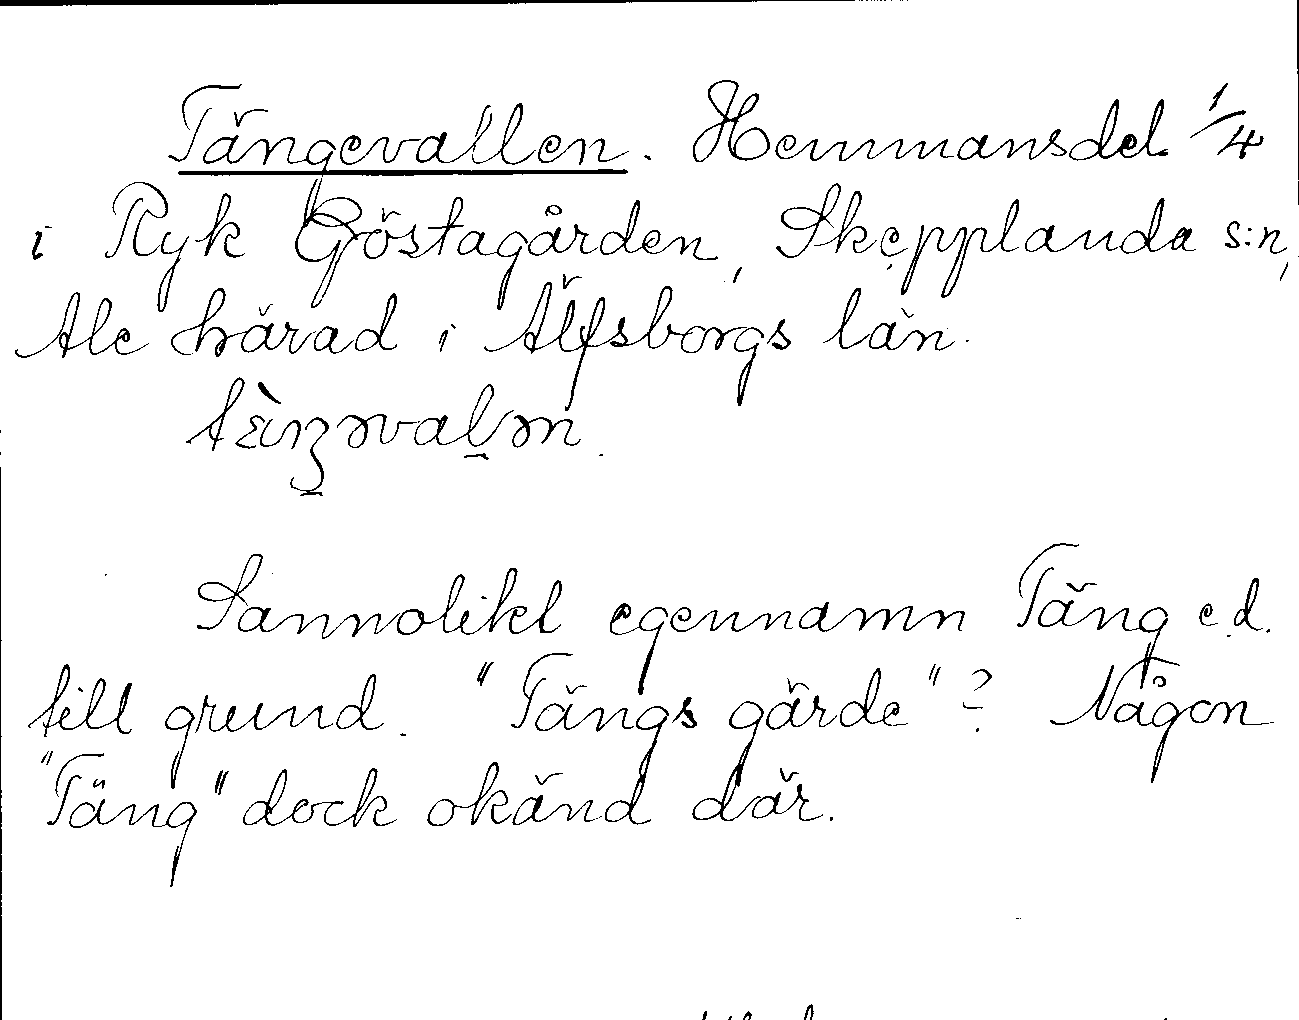 Tängevallen. Hemmansdel 1/4
i Ryk Göstagården, Skepplanda s:n,
Ale härad i Älfsborgs län.
Sannolikt egennamn Täng e.d.
till grund. "Tängs gärde"? Någon
"Täng" dock okänd där.